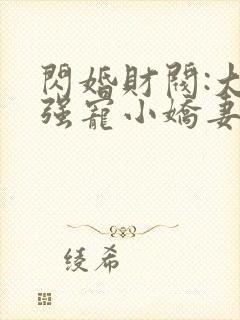 閃婚財閥:大
强寵小嬌妻
绫希